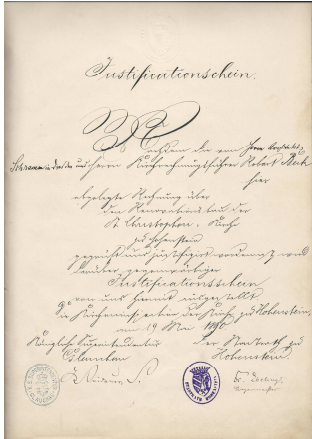 Justificationschein.
Nachdem die von Herrn Architekt
Schramm in Dresden und Herrn Kirchrechnungsführer Robert Beck
hier
abgelegte Rechnung über
den Renovationsbau der
St. Christophori-Kirche
zu Hohenstein
geprüft und justificirt worden ist, wird
hierüber gegenwärtiger
Justificationsschein
von uns hiermit ausgestellt
Kircheninspection der Kirche zu Hohenstein,
am 19 Mai 1890.
Königliche Superintendentur
Glauchau
Der Stadtrath zu
Hohenstein.